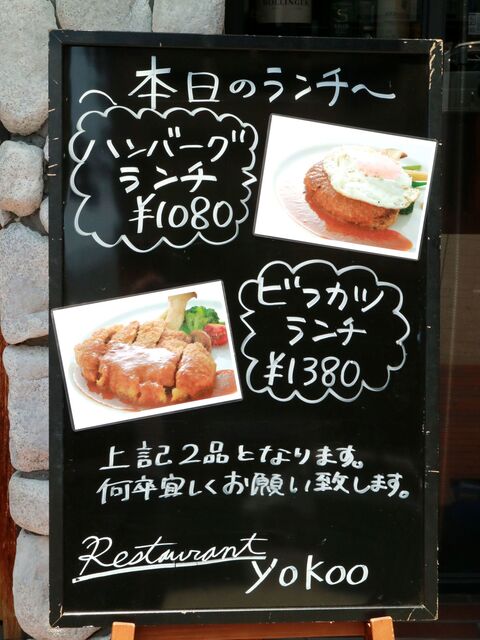 本日のランチ～
ハンバーグ
ランチ
¥1080
ビフカツ
ランチ
¥1380
上記2品となります。
何卒宜しくお願い致します。
Restaurant
yokoo